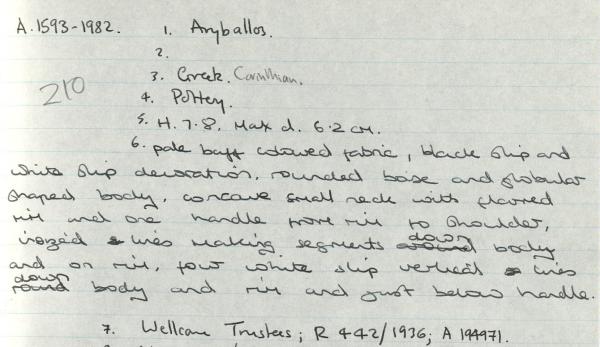 A.1593-1982. 1. Aryballos.
2.
3. Greek. Corinthian.
210
4. Pottery.
5. H. 7.8. Max d. 6.2 cm.
6. pale buff coloured fabric, black slip and
white slip decoration, rounded base and globular
shaped body, concave small neck with flared
rim and one handle from rim to shoulder,
incized lines making segments around down body
and on rim, four white slip vertical lines
round down body and rim and just below handle.
7. Wellcome Trustees; R 442/1936; A 194971.